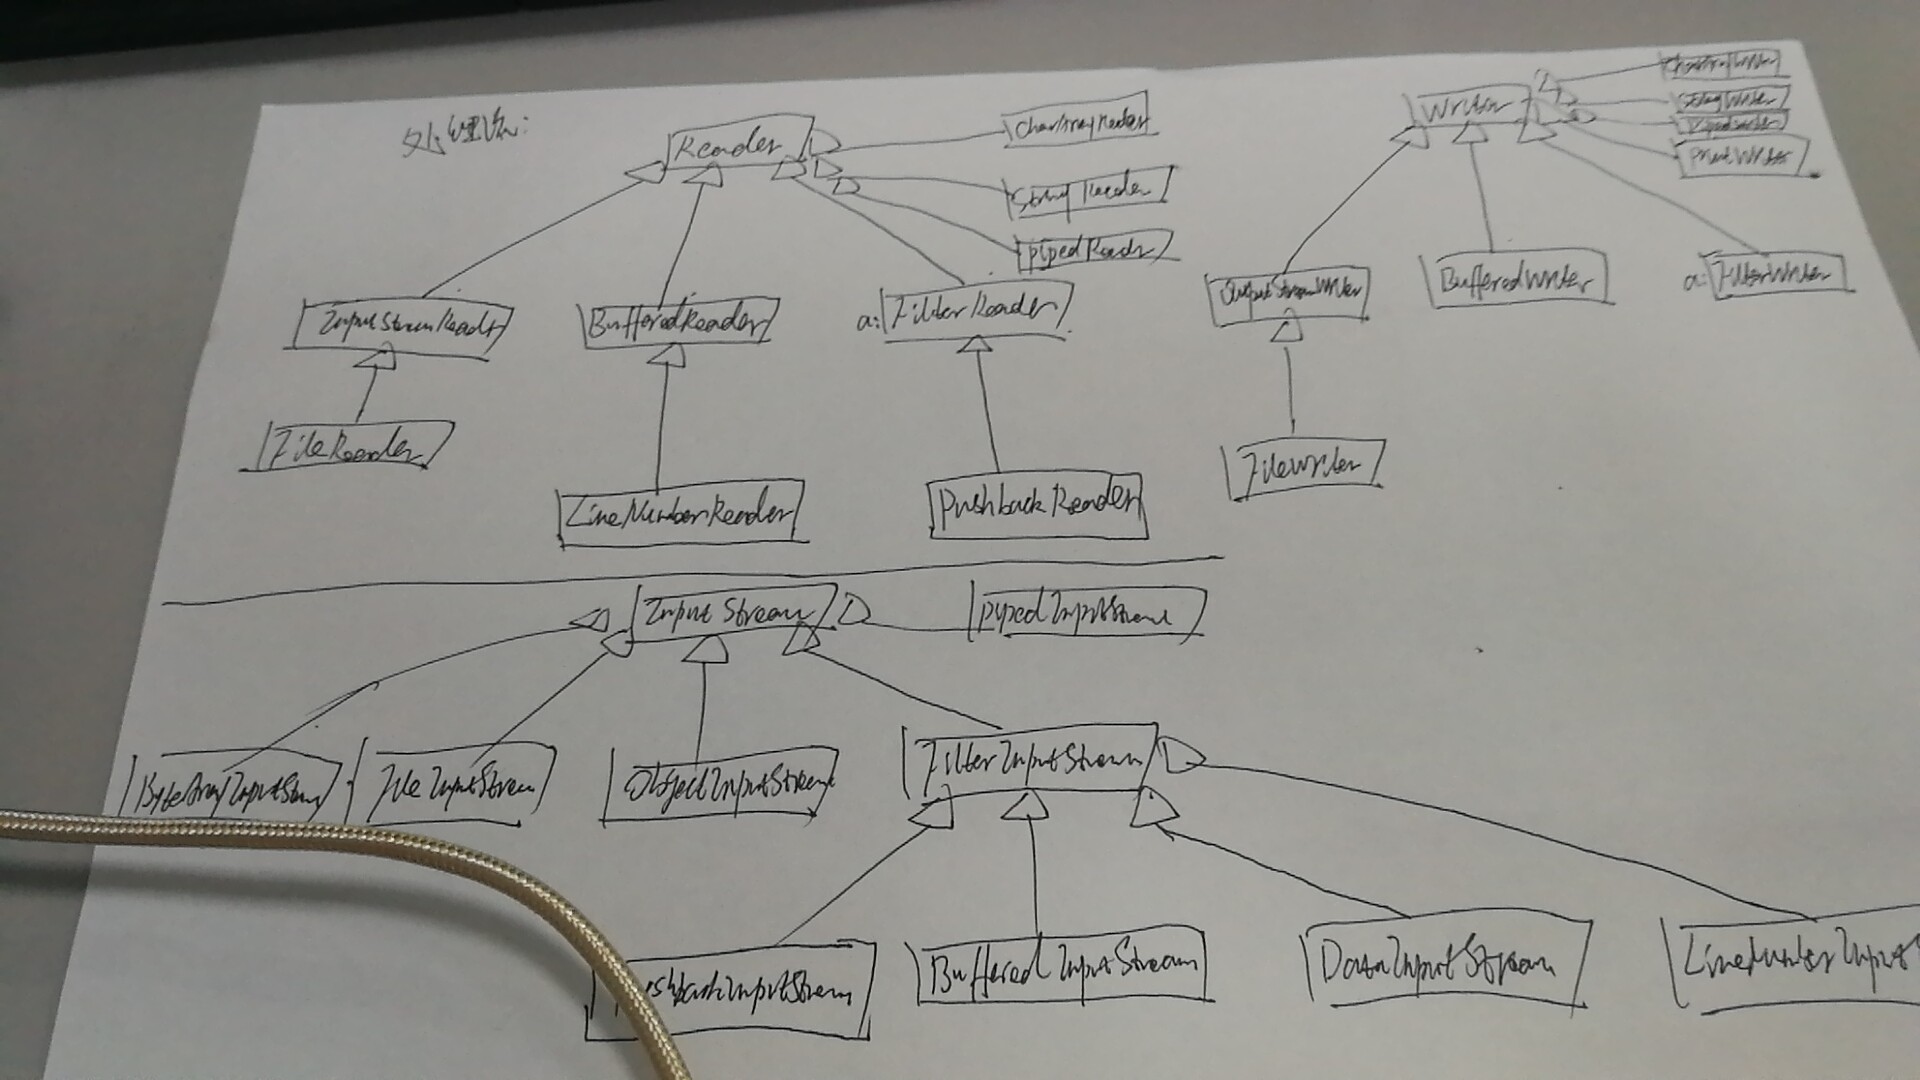 处理流:
Reader
CharArrayReader
StringReader
pipedReader
InputStreamReader
BufferedReader
a: FilterReader
FileReader
LineNumberReader
PushbackReader
Writer
CharArrayWriter
StringWriter
PipedWriter
PrintWriter
OutputStreamWriter
BufferedWriter
a: FilterWriter
FileWriter
InputStream
pipedInputStream
ByteArrayInputStream
FileInputStream
ObjectInputStream
FilterInputStream
shbackInputStream
BufferedInputStream
DataInputStream
LineNumberInputS